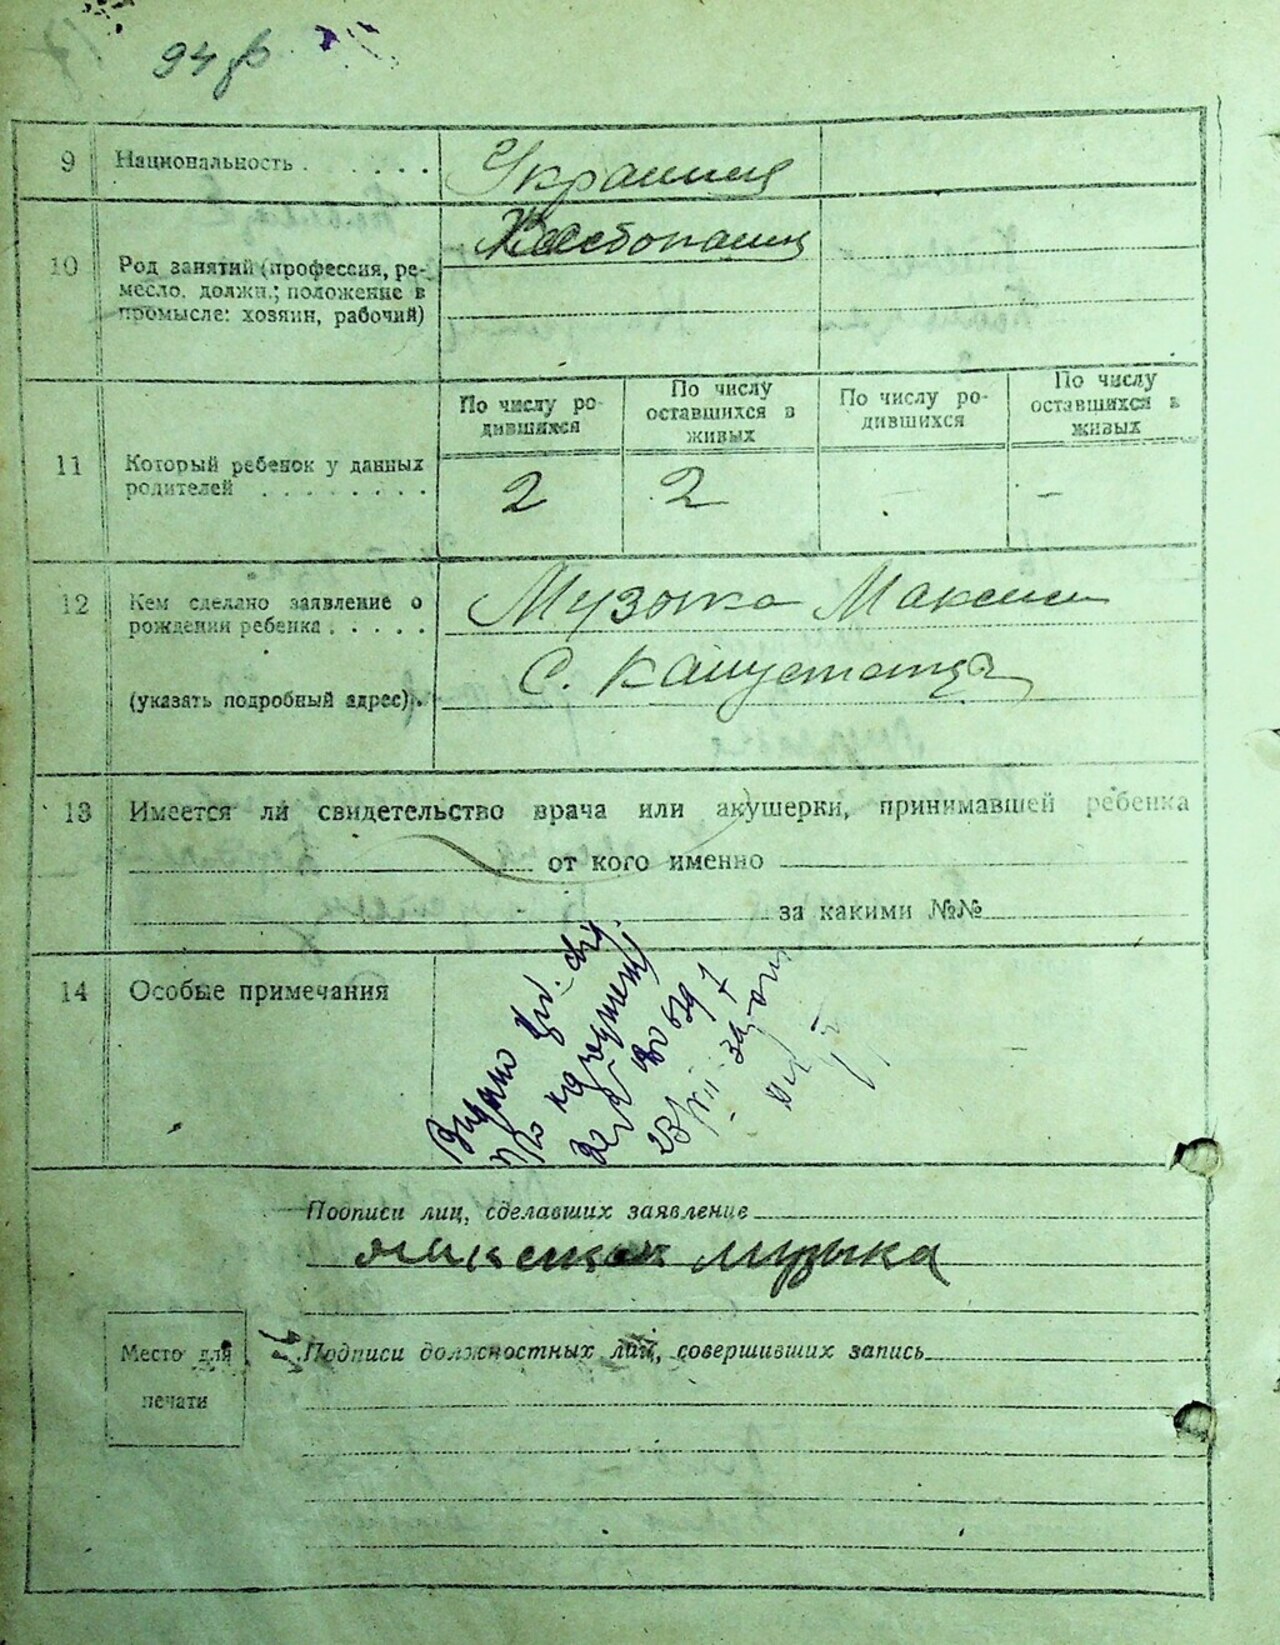 94
9 Национальность . . . . . . Украинц
10 Род занятий (профессия, ре-
месло, должн.; положение в
промысле: хозяин, рабочий)
Хлебопашц
11 Который ребенок у данных
родителей . . . . . . . .
По числу ро-
дившихся
По числу
оставшихся в
живых
По числу ро-
дившихся
По числу
оставшихся в
живых
2 2 - -
12 Кем сделано заявление о
рождении ребенка . . . . .
(указать подробный адрес) .
Музыка Максим
С. Капустинцы
13 Имеется ли свидетельство врача или акушерки, принимавшей ребенка
от кого именно
за какими №№
14 Особые примечания
Подписи лиц, сделавших заявление
Музыка
Место для
печати
Подписи должностных лиц, совершивших запись